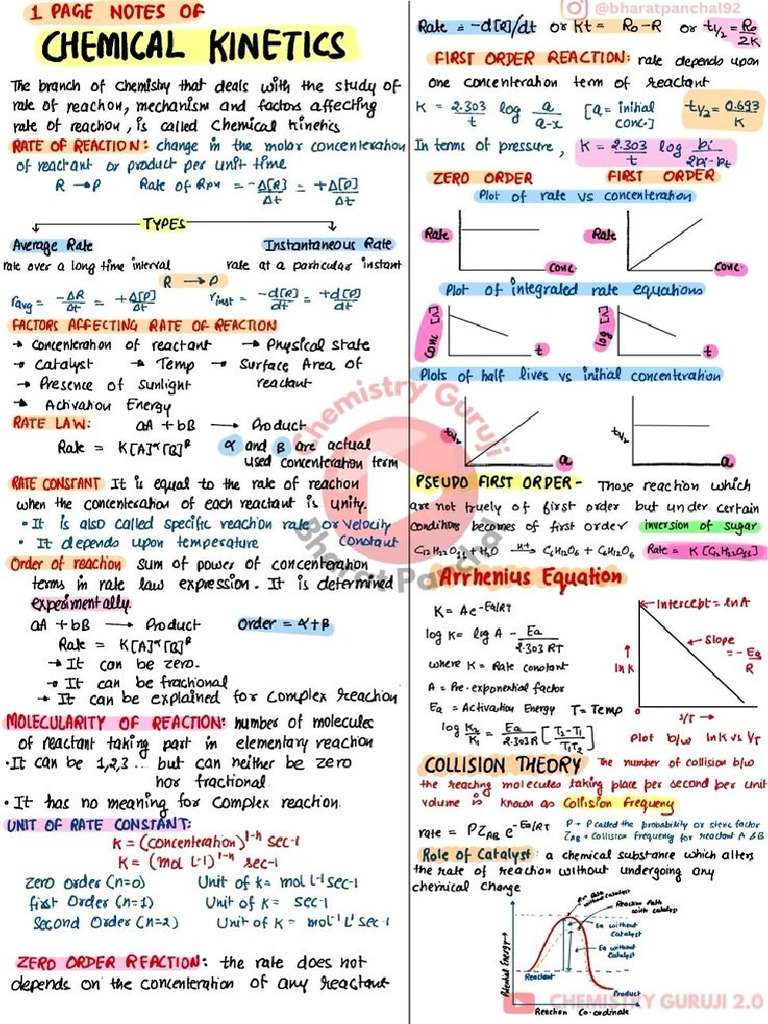 1 PAGE NOTES OF
CHEMICAL KINETICS
The branch of chemistry that deals with the study of
rate of reaction, mechanism and factors affecting
rate of reaction, is called Chemical Kinetics
RATE OF REACTION: change in the molar concentration
of reactant or product per unit time
R → P Rate of Rxn = -Δ[R]/Δt = +Δ[P]/Δt
TYPES
Average Rate Instantaneous Rate
rate over a long time interval rate at a particular instant
R → P
ravg = -ΔR/Δt = +Δ[P]/Δt rinst = -d[R]/dt = +d[P]/dt
FACTORS AFFECTING RATE OF REACTION
→ Concentration of reactant → Physical state
→ Catalyst → Temp → Surface Area of
→ Presence of sunlight reactant
→ Activation Energy
RATE LAW: aA + bB → Product
Rate = K[A]^α[B]^β α and β are actual
used concentration term
RATE CONSTANT It is equal to the rate of reaction
when the concentration of each reactant is unity.
• It is also called specific reaction rate or velocity
• It depends upon temperature Constant
Order of reaction sum of power of concentration
terms in rate law expression. It is determined
experimentally.
aA + bB → Product Order = α+β
Rate = K[A]^α[B]^β
→ It can be zero.
→ It can be fractional
→ It can be explained for complex reaction
MOLECULARITY OF REACTION: number of molecules
of reactant taking part in elementary reaction
• It can be 1,2,3 ... but can neither be zero
nor fractional.
• It has no meaning for complex reaction.
UNIT OF RATE CONSTANT:
K = (concentration)^1-n sec-1
K = (mol L-1)^1-n sec-1
Zero Order (n=0) Unit of k = mol L-1 sec-1
first Order (n=1) Unit of K = sec-1
Second Order (n=2) Unit of K = mol-1 L1 sec-1
ZERO ORDER REACTION: the rate does not
depends on the concentration of any reactant
@bharatpanchal92
Rate = -d[R]/dt or Kt = R₀-R or t1/2 = R₀/2K
FIRST ORDER REACTION: rate depends upon
one concentration term of reactant
K = 2.303/t log a/a-x [a = initial conc.] t1/2 = 0.693/K
In terms of pressure, K = 2.303/t log Pi/2Pi-Pt
ZERO ORDER FIRST ORDER
Plot of rate vs concentration
Rate Rate
Conc. Conc.
Plot of integrated rate equations
Conc [A] log [A]
t t
Plots of half lives vs initial concentration
t1/2 t1/2
a a
PSEUDO FIRST ORDER- Those reaction which
are not truely of first order but under certain
conditions becomes of first order inversion of sugar
C12H22O11 + H2O →H+ C6H12O6 + C6H12O6 Rate = K[C12H22O11]
Arrhenius Equation
K = Ae^-Ea/RT
log K = log A - Ea/2.303 RT
where K = Rate constant
A = Pre-exponential factor
Ea = Activation Energy T = Temp
log K2/K1 = Ea/2.303R [T2-T1/T1T2]
Intercept = lnA
Slope = -Ea/R
ln K
0
1/T →
Plot b/w lnK vs 1/T
COLLISION THEORY The number of collision b/w
the reacting molecules taking place per second per unit
volume is known as Collision frequency
rate = PZAB e^-Ea/RT
P → P called the probability or steric factor
ZAB = Collision Frequency for reactant A & B
Role of Catalyst: a chemical substance which alters
the rate of reaction without undergoing any
chemical change
Path without catalyst
Reaction Path with catalyst
Ea without Catalyst
Ea without Catalyst
Potential Energy →
Reactant
Product
Reaction Co-ordinate
Chemistry Guruji
Bharat Panchal
CHEMISTRY GURUJI 2.0